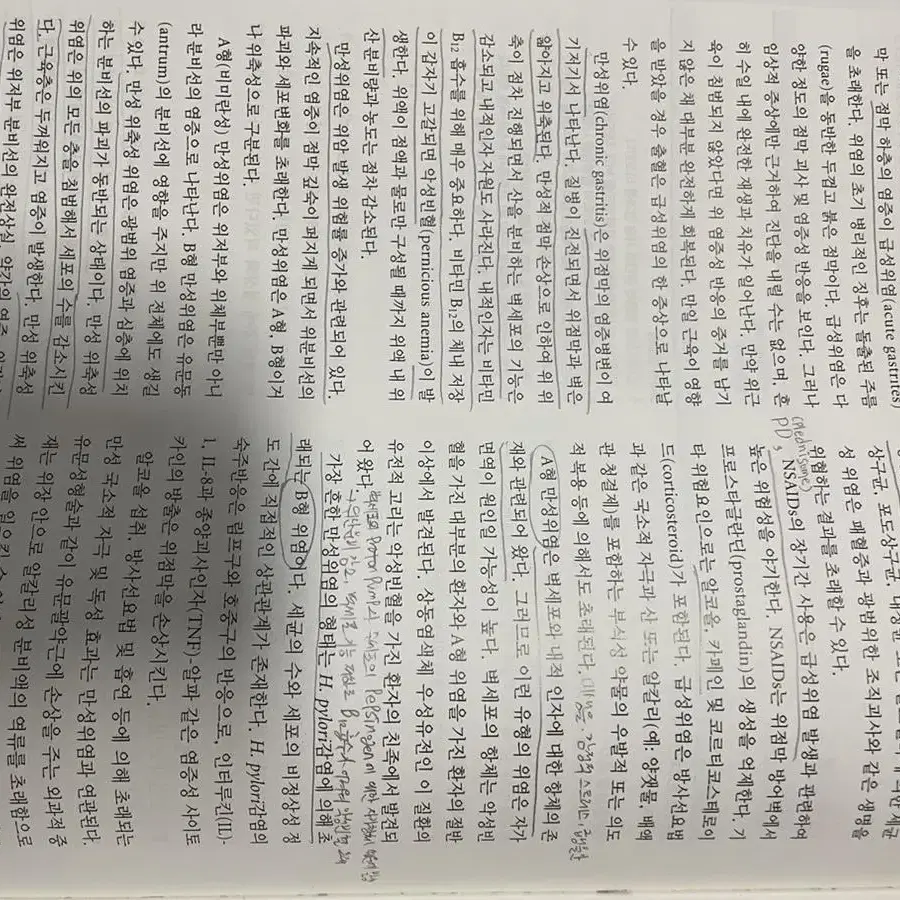 막 또는 점막 하층의 염증이 급성위염(acute gastrites)
을 초래한다. 위염의 초기 병리적인 징후는 돌출된 주름
(rugae)을 동반한 두껍고 붉은 점막이다. 급성위염은 다
양한 정도의 점막 괴사 및 염증성 반응을 보인다. 그러나
임상적 증상에만 근거하여 진단을 내릴 수는 없으며, 흔
히 수일 내에 완전한 재생과 치유가 일어난다. 만약 위근
육이 침범되지 않았다면 위 염증성 반응의 증거를 남기
지 않은 채 대부분 완전하게 회복된다. 만일 근육이 영향
을 받았을 경우 출혈은 급성위염의 한 증상으로 나타날
수 있다.
만성위염(chronic gastritis)은 위점막의 염증병변이 여
기저기서 나타난다. 질병이 진전되면서 위점막과 벽은
얇아지고 위축된다. 만성적 점막 손상으로 인하여 위 위
축이 점차 진행되면서 산을 분비하는 벽세포의 기능은
감소되고 내적인자 자원도 사라진다. 내적인자는 비타민
B12 흡수를 위해 매우 중요하다. 비타민 B12의 체내 저장
이 갑자기 고갈되면 악성빈혈(pernicious anemia)이 발
생한다. 위액이 점액과 물로만 구성될 때까지 위액 내 위
산 분비량과 농도는 점차 감소된다.
만성위염은 위암 발생 위험률 증가와 관련되어 있다.
지속적인 염증이 점막 깊숙이 퍼지게 되면서 위분비선의
파괴와 세포변화를 초래한다. 만성위염은 A형, B형이거
나 위축성으로 구분된다.
A형(비미란성) 만성위염은 위저부와 위체부뿐만 아니
라 분비선의 염증으로 나타난다. B형 만성위염은 유문동
(antrum)의 분비선에 영향을 주지만 위 전체에도 생길
수 있다. 만성 위축성 위염은 광범위 염증과 심층에 위치
하는 분비선의 파괴가 동반되는 상태이다. 만성 위축성
위염은 위의 모든 층을 침범해서 세포의 수를 감소시킨
다. 근육층은 두꺼워지고 염증이 발생한다. 만성 위축성
위염은 위저부 분비선의 완전상실, 약간의 염증,
상구균, 포도상구균, 대장균 또는
성 위염은 패혈증과 광범위한 조직괴사와 같은 생명을
위협하는 결과를 초래할 수 있다.
NSAIDs의 장기간 사용은 급성위염 발생과 관련하여
높은 위험성을 야기한다. NSAIDs는 위점막 방어벽에서
프로스타글란딘(prostaglandin)의 생성을 억제한다. 기
타 위험요인으로는 알코올, 카페인 및 코르티코스테로이
드(corticosteroid)가 포함된다. 급성위염은 방사선요법
과 같은 국소적 자극과 산 또는 알칼리(예: 양잿물 배액
관 청결제)를 포함하는 부식성 약물의 우발적 또는 의도
적복용 등에 의해서도 초래된다.
A형 만성위염은 벽세포와 내적 인자에 대한 항체의 존
재와 관련되어 왔다. 그러므로 이런 유형의 위염은 자가
면역이 원인일 가능성이 높다. 벽세포의 항체는 악성빈
혈을 가진 대부분의 환자와 A형 위염을 가진 환자의 절반
이상에서 발견된다. 상동염색체 우성유전인 이 질환의
유전적 고리는 악성빈혈을 가진 환자의 친족에서 발견되
어 왔다.
가장 흔한 만성위염의 형태는 H. pylori감염에 의해 초
래되는 B형 위염이다. 세균의 수와 세포의 비정상성 정
도 간에 직접적인 상관관계가 존재한다. H. pylori감염의
숙주반응은 림프구와 호중구의 반응으로, 인터루킨(IL)-
1, IL-8과 종양괴사인자(TNF)-알파 같은 염증성 사이토
카인의 방출은 위점막을 손상시킨다.
알코올 섭취, 방사선요법 및 흡연 등에 의해 초래되는
만성 국소적 자극 및 독성 효과는 만성위염과 연관된다.
유문성형술과 같이 유문괄약근에 손상을 주는 외과적 중
재는 위장 안으로 알칼리성 분비액의 역류를 초래함으로
써 위염을 일으킬 수